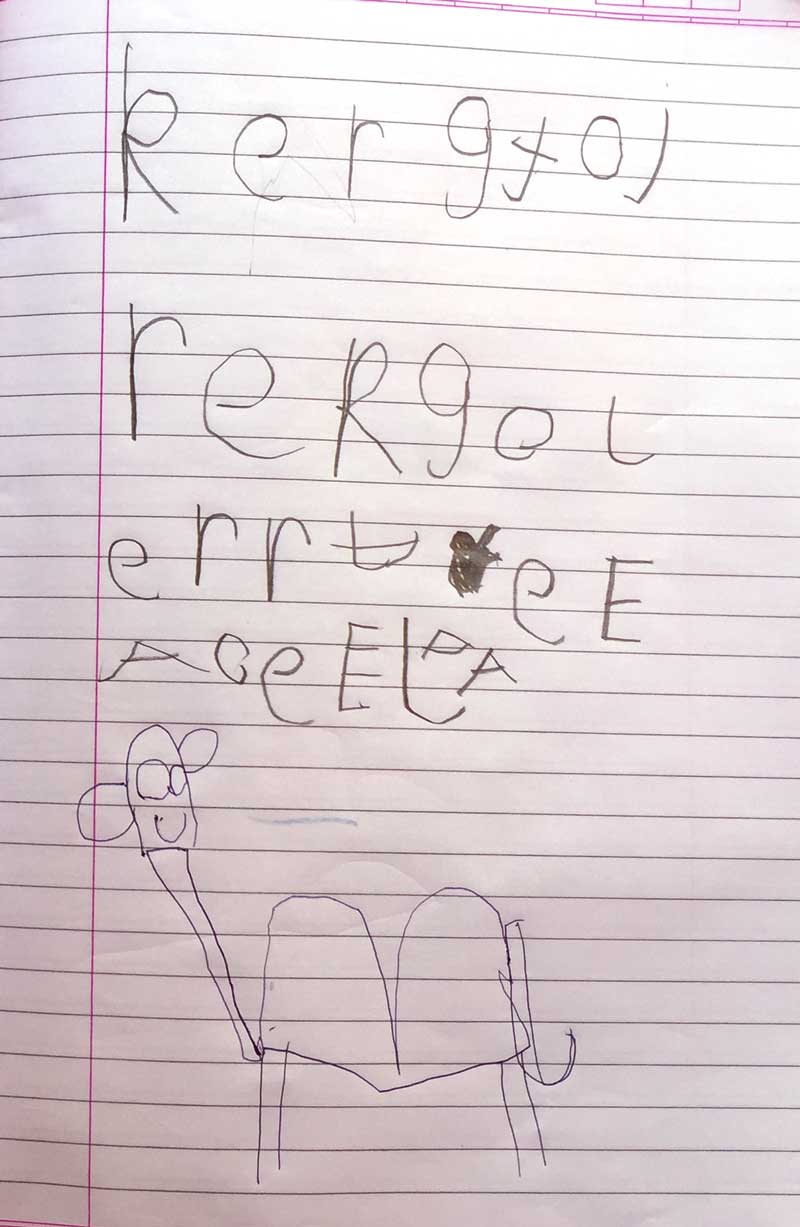 kergtoj
reRgol
errt eE
AOeELAA